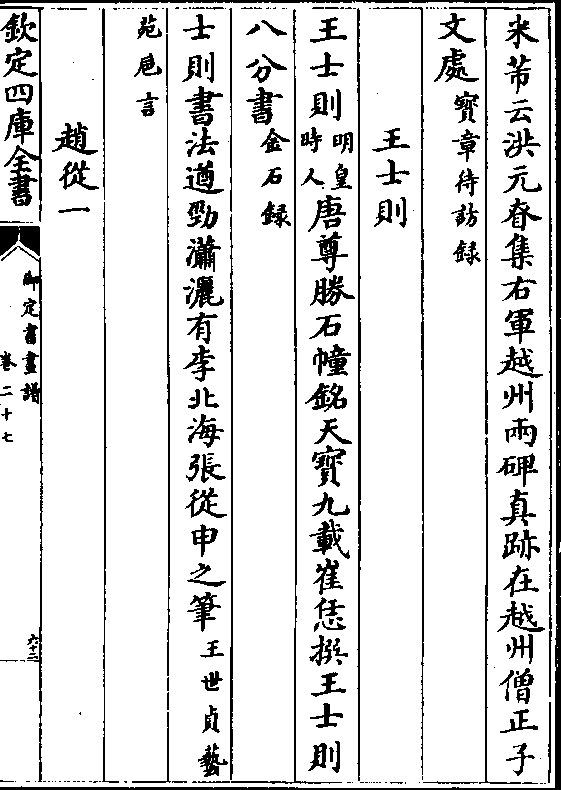 米芾云洪元眘集右軍越州兩碑真跡在越州僧正子
文處寶章待訪録
王士則
王士則明皇時人唐尊勝石幢銘天寶九載崔恁撰王士則
八分書金石録
士則書法遒勁瀟灑有李北海張從申之筆王世貞藝
苑卮言
趙從一
欽定四庫全書
御定書畫譜
卷二十七
六十三